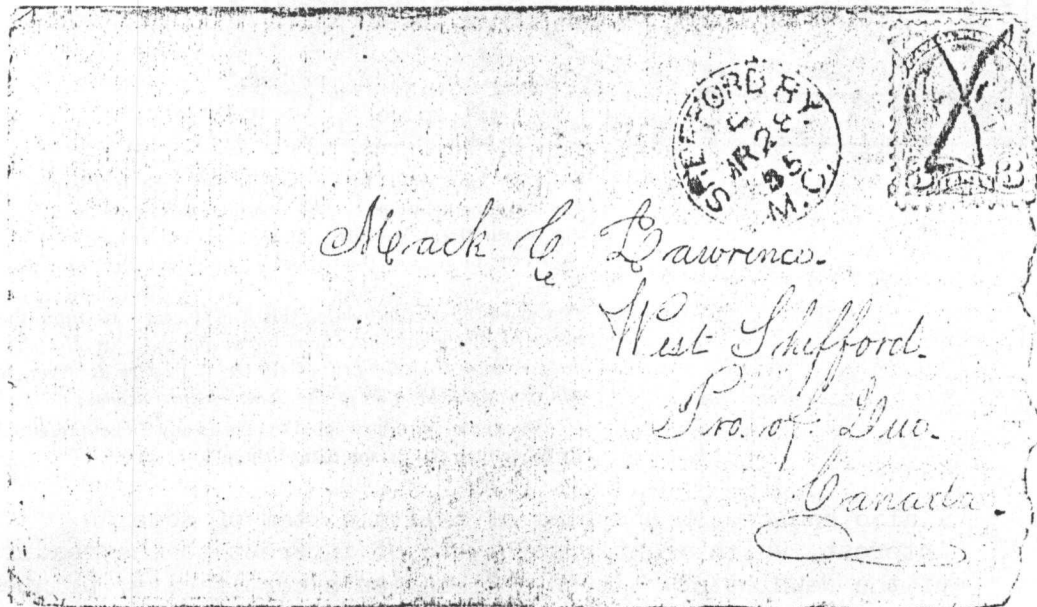 SHEFFORD RY.
AR 28
85
M.C.
3 3
Mack C Lawrence.
West Shefford.
Pro. of Que.
Canada.